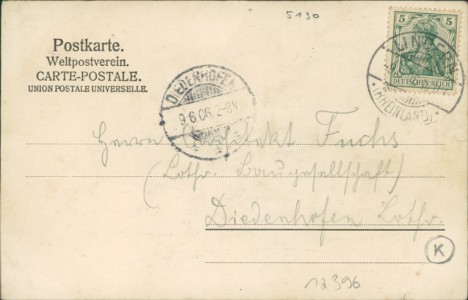 5130
Postkarte.
Weltpostverein.
CARTE-POSTALE.
UNION POSTALE UNIVERSELLE.
5 5
DEUTSCHES REICH
(RHEINLAND)
DIEDENHOFEN
9.6.06. 2-3N
Herrn Architekt Fuchs
(Lothr. Baugesellschaft)
Diedenhofen Lothr.
K
12396